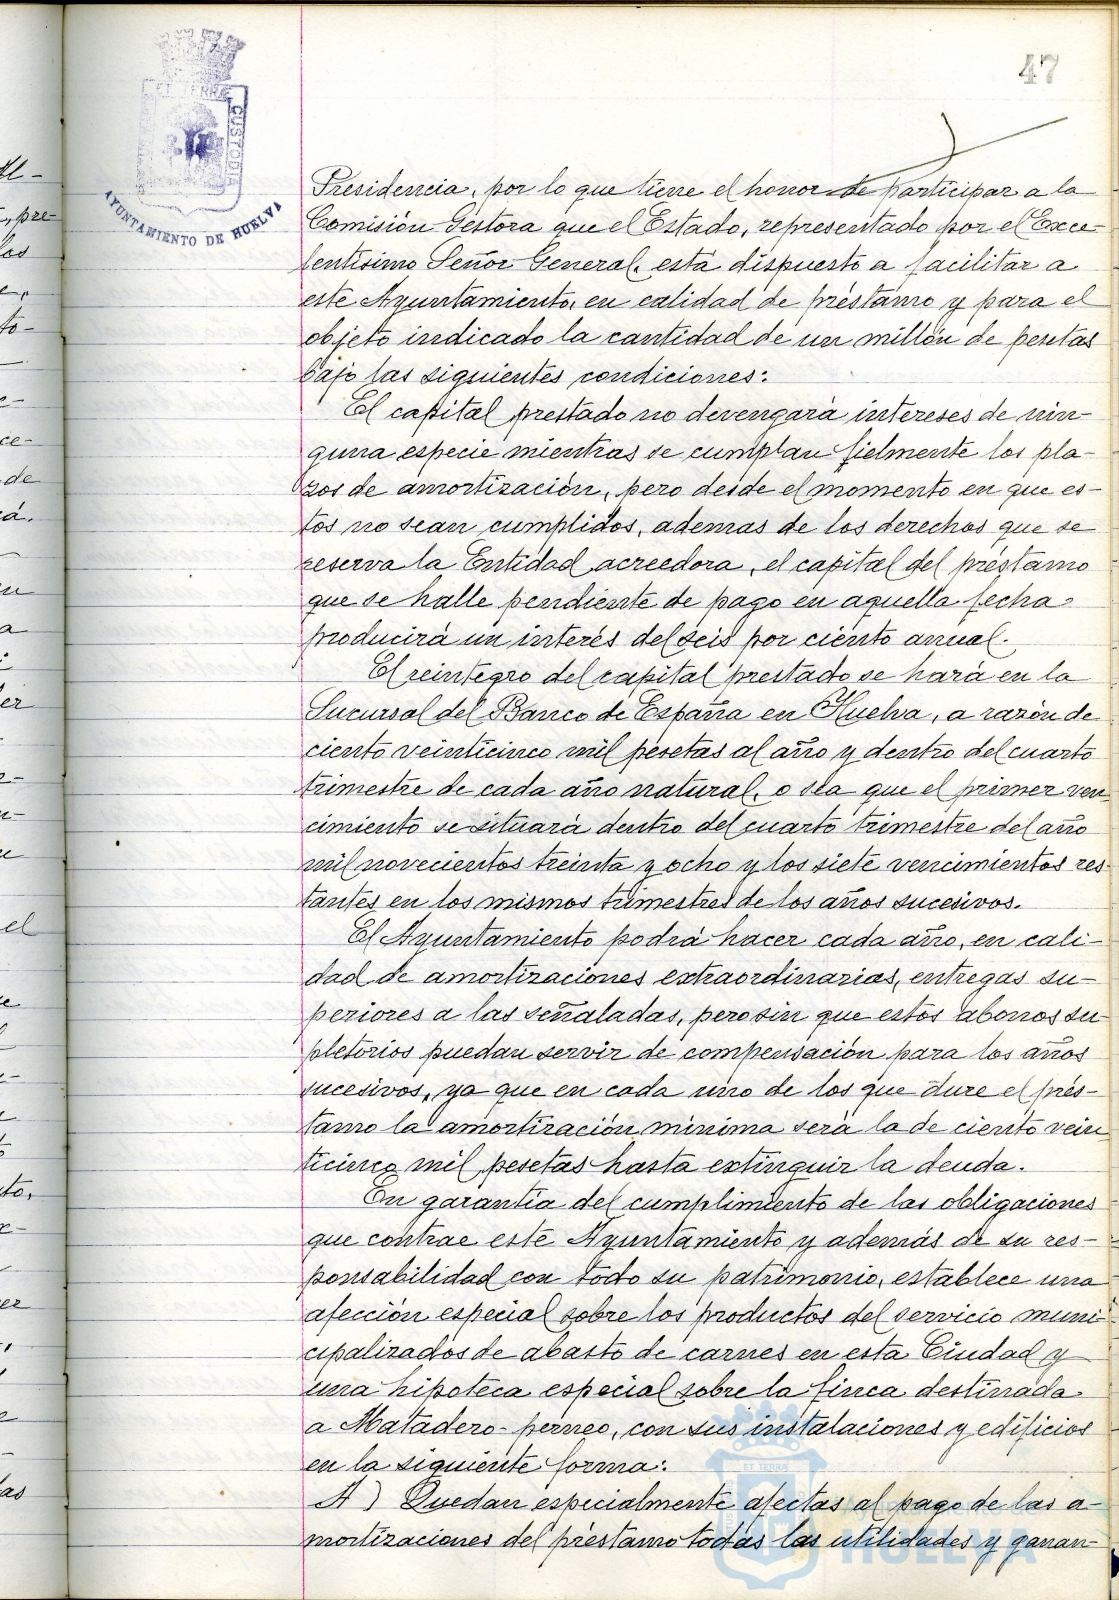 47
ET TERRÆ
CUSTODIA
AYUNTAMIENTO DE HUELVA
Presidencia, por lo que tiene el honor de participar a la
Comisión Gestora que el Estado, representado por el Exce-
lentísimo Señor General, está dispuesto a facilitar a
este Ayuntamiento, en calidad de préstamo y para el
objeto indicado la cantidad de un millón de pesetas
bajo las siguientes condiciones:
El capital prestado no devengará intereses de nin-
guna especie mientras se cumplan fielmente los pla-
zos de amortización, pero desde el momento en que es-
tos no sean cumplidos, ademas de los derechos que se
reserva la Entidad acreedora, el capital del préstamo
que se halle pendiente de pago en aquella fecha
producirá un interés del seis por ciento anual.
El reintegro del capital prestado se hará en la
Sucursal del Banco de España en Huelva, a razón de
ciento veinticinco mil pesetas al año y dentro del cuarto
trimestre de cada año natural, o sea que el primer ven
cimiento se situará dentro del cuarto trimestre del año
mil novecientos treinta y ocho y los siete vencimientos res-
tantes en los mismos trimestres de los años sucesivos.
El Ayuntamiento podrá hacer cada año, en cali-
dad de amortizaciones extraordinarias, entregas su-
periores a las señaladas, pero sin que estos abonos su
pletorios puedan servir de compensación para los años
sucesivos, ya que en cada uno de los que dure el prés-
tamo la amortización mínima será la de ciento vein
ticinco mil pesetas hasta extinguir la deuda.
En garantía del cumplimiento de las obligaciones
que contrae este Ayuntamiento y además de su res-
ponsabilidad con todo su patrimonio, establece una
afección especial sobre los productos del servicio muni-
cipalizados de abasto de carnes en esta Ciudad y
una hipoteca especial sobre la finca destinada
a Matadero-perneo, con sus instalaciones y edificios
en la siguiente forma:
A) Quedan especialmente afectas al pago de las a-
mortizaciones del préstamo todas las utilidades y ganan-
ET TERRA
Ayuntamiento de
HUELVA